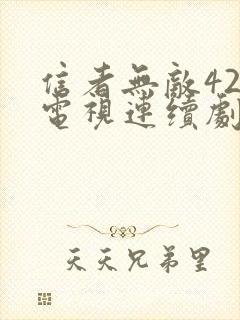 信者無敵42
電視連續劇
天天兄弟里